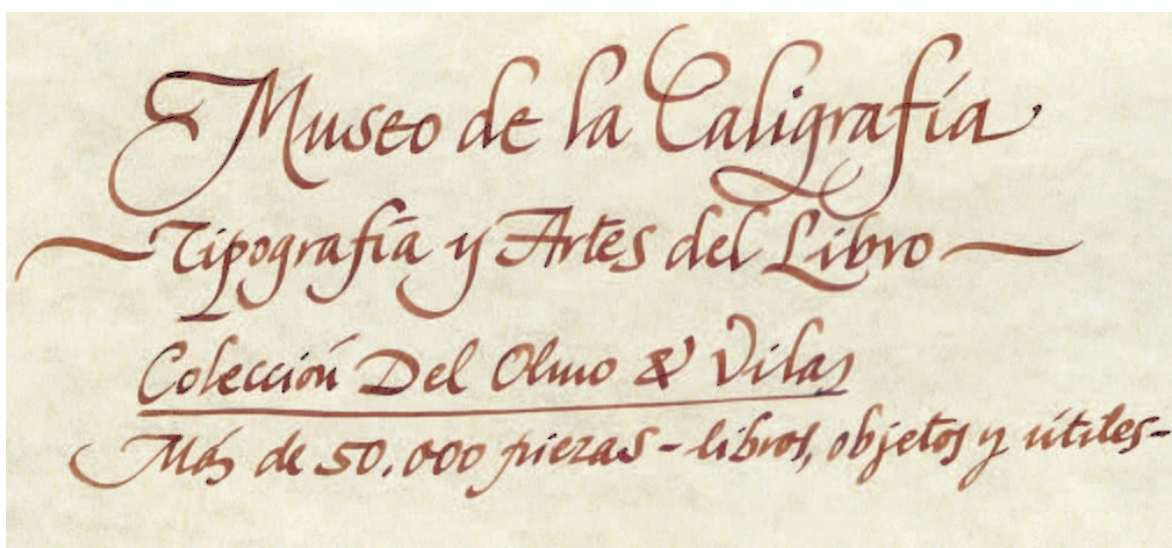 Museo de la Caligrafía
Tipografía y Artes del Libro
Colección Del Olmo & Vilas
Más de 50.000 piezas - libros, objetos y útiles-